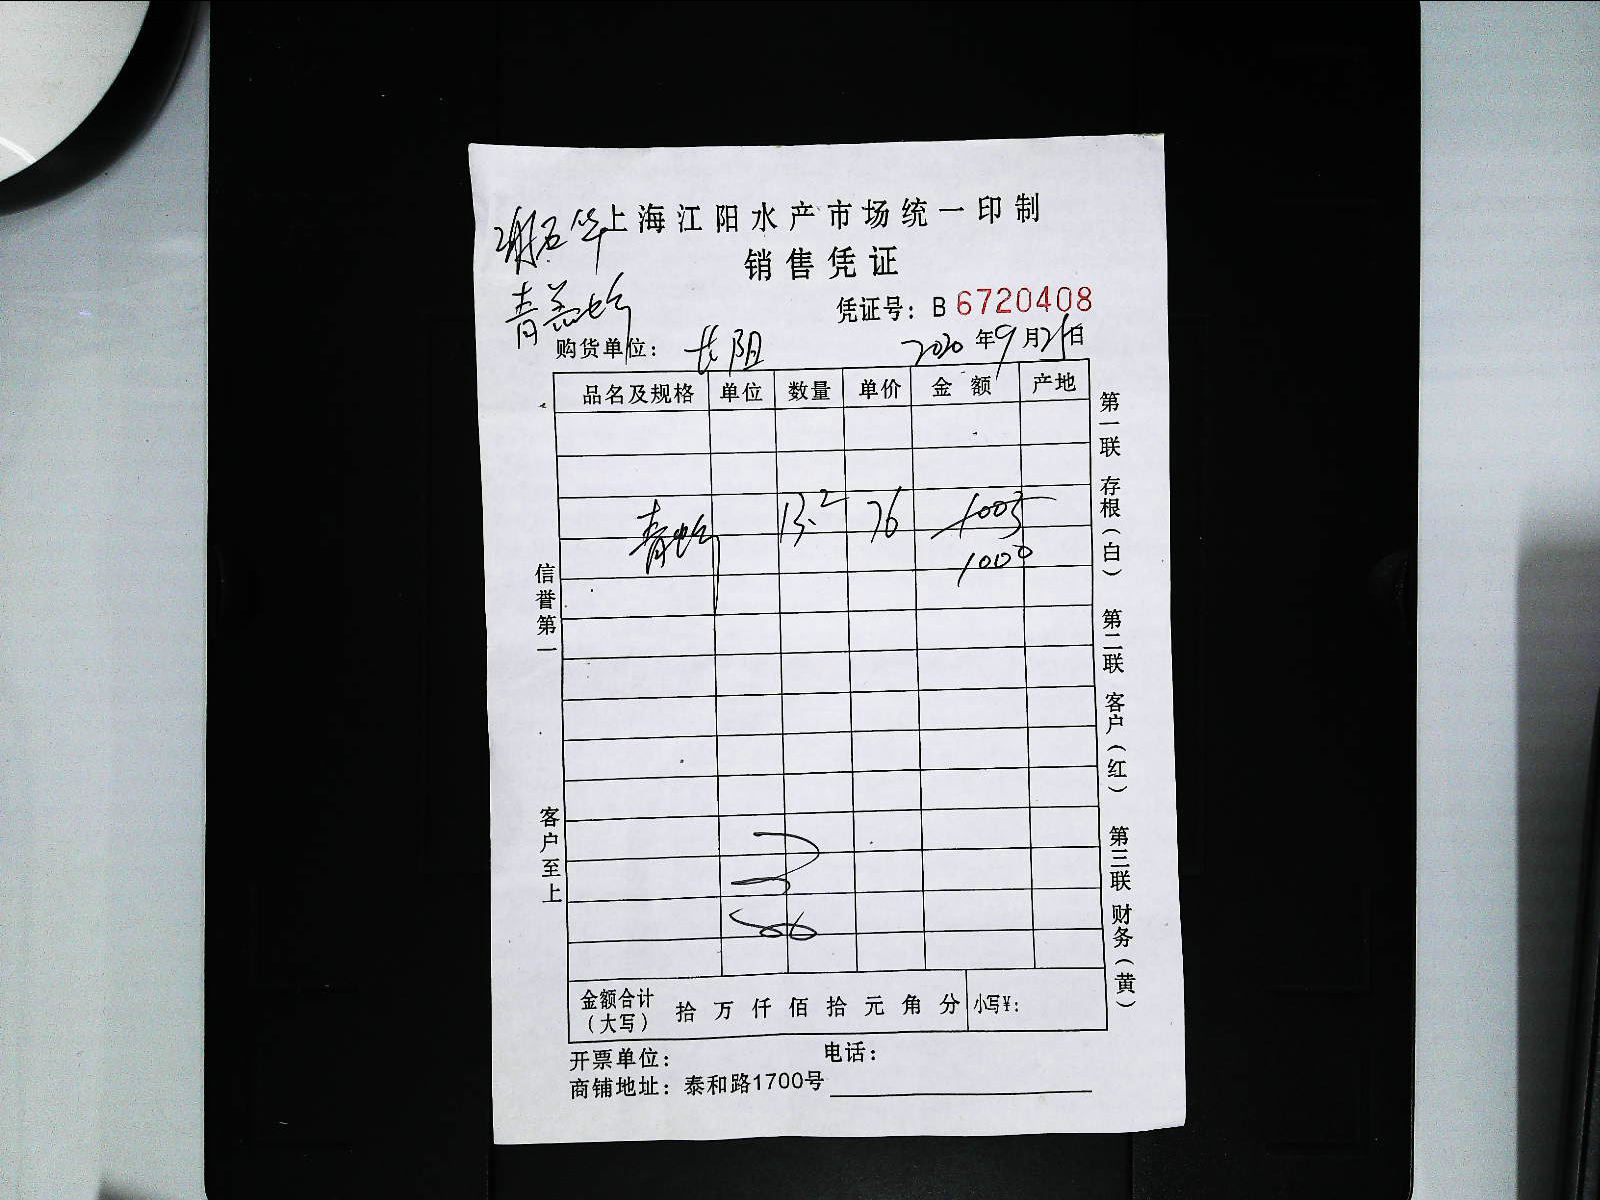 上海江阳水产市场统一印制
销售凭证
凭证号：B 6720408
购货单位：长阳 2020年9月21日
品名及规格 单位 数量 单价 金额 产地
青蛤 13.2 76 1003
1000
金额合计（大写） 拾 万 仟 佰 拾 元 角 分 小写¥：
开票单位： 电话：
商铺地址：泰和路1700号
信誉第一
客户至上
第一联 存根（白） 第二联 客户（红） 第三联 财务（黄）